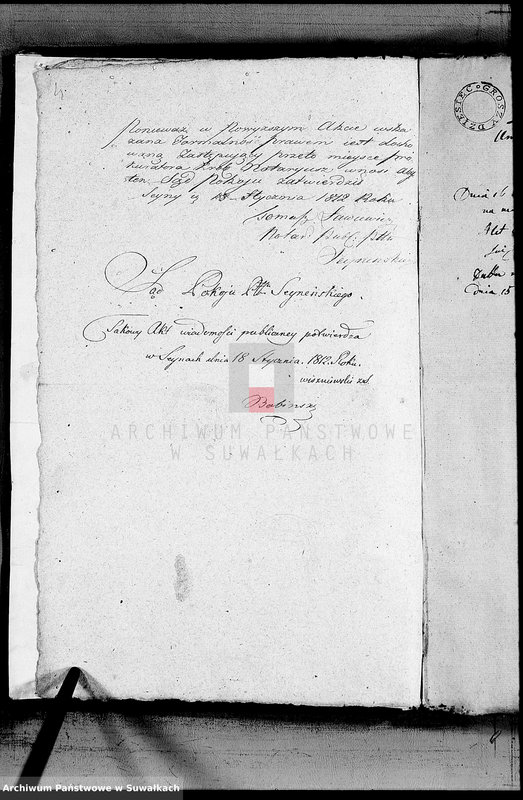 4
Ponieważ w Powyższym Akcie wska
zana Formalność prawem iest docho
waną Zastępuiący przeto mieysce pro
kuratora Król: Notaryusz wnosi Aby
ten Sąd Pokoju zatwierdził
Seyny d 18 Stycznia 1812 Roku
Tomasz
Notar. Publ. Pttu
Seyneński
Sąd Pokoju Pttu Seyneńskiego.
Takowy Akt wiadomości publiczney potwierdza
w Seynach dnia 18 Stycznia. 1812. Roku.
wiszniewski
Babinski
DZIESIĘC GROSZY
Dnia 16
na
Akt
dnia 15
ARCHIWUM PAŃSTWOWE
W SUWAŁKACH
Archiwum Państwowe w Suwałkach